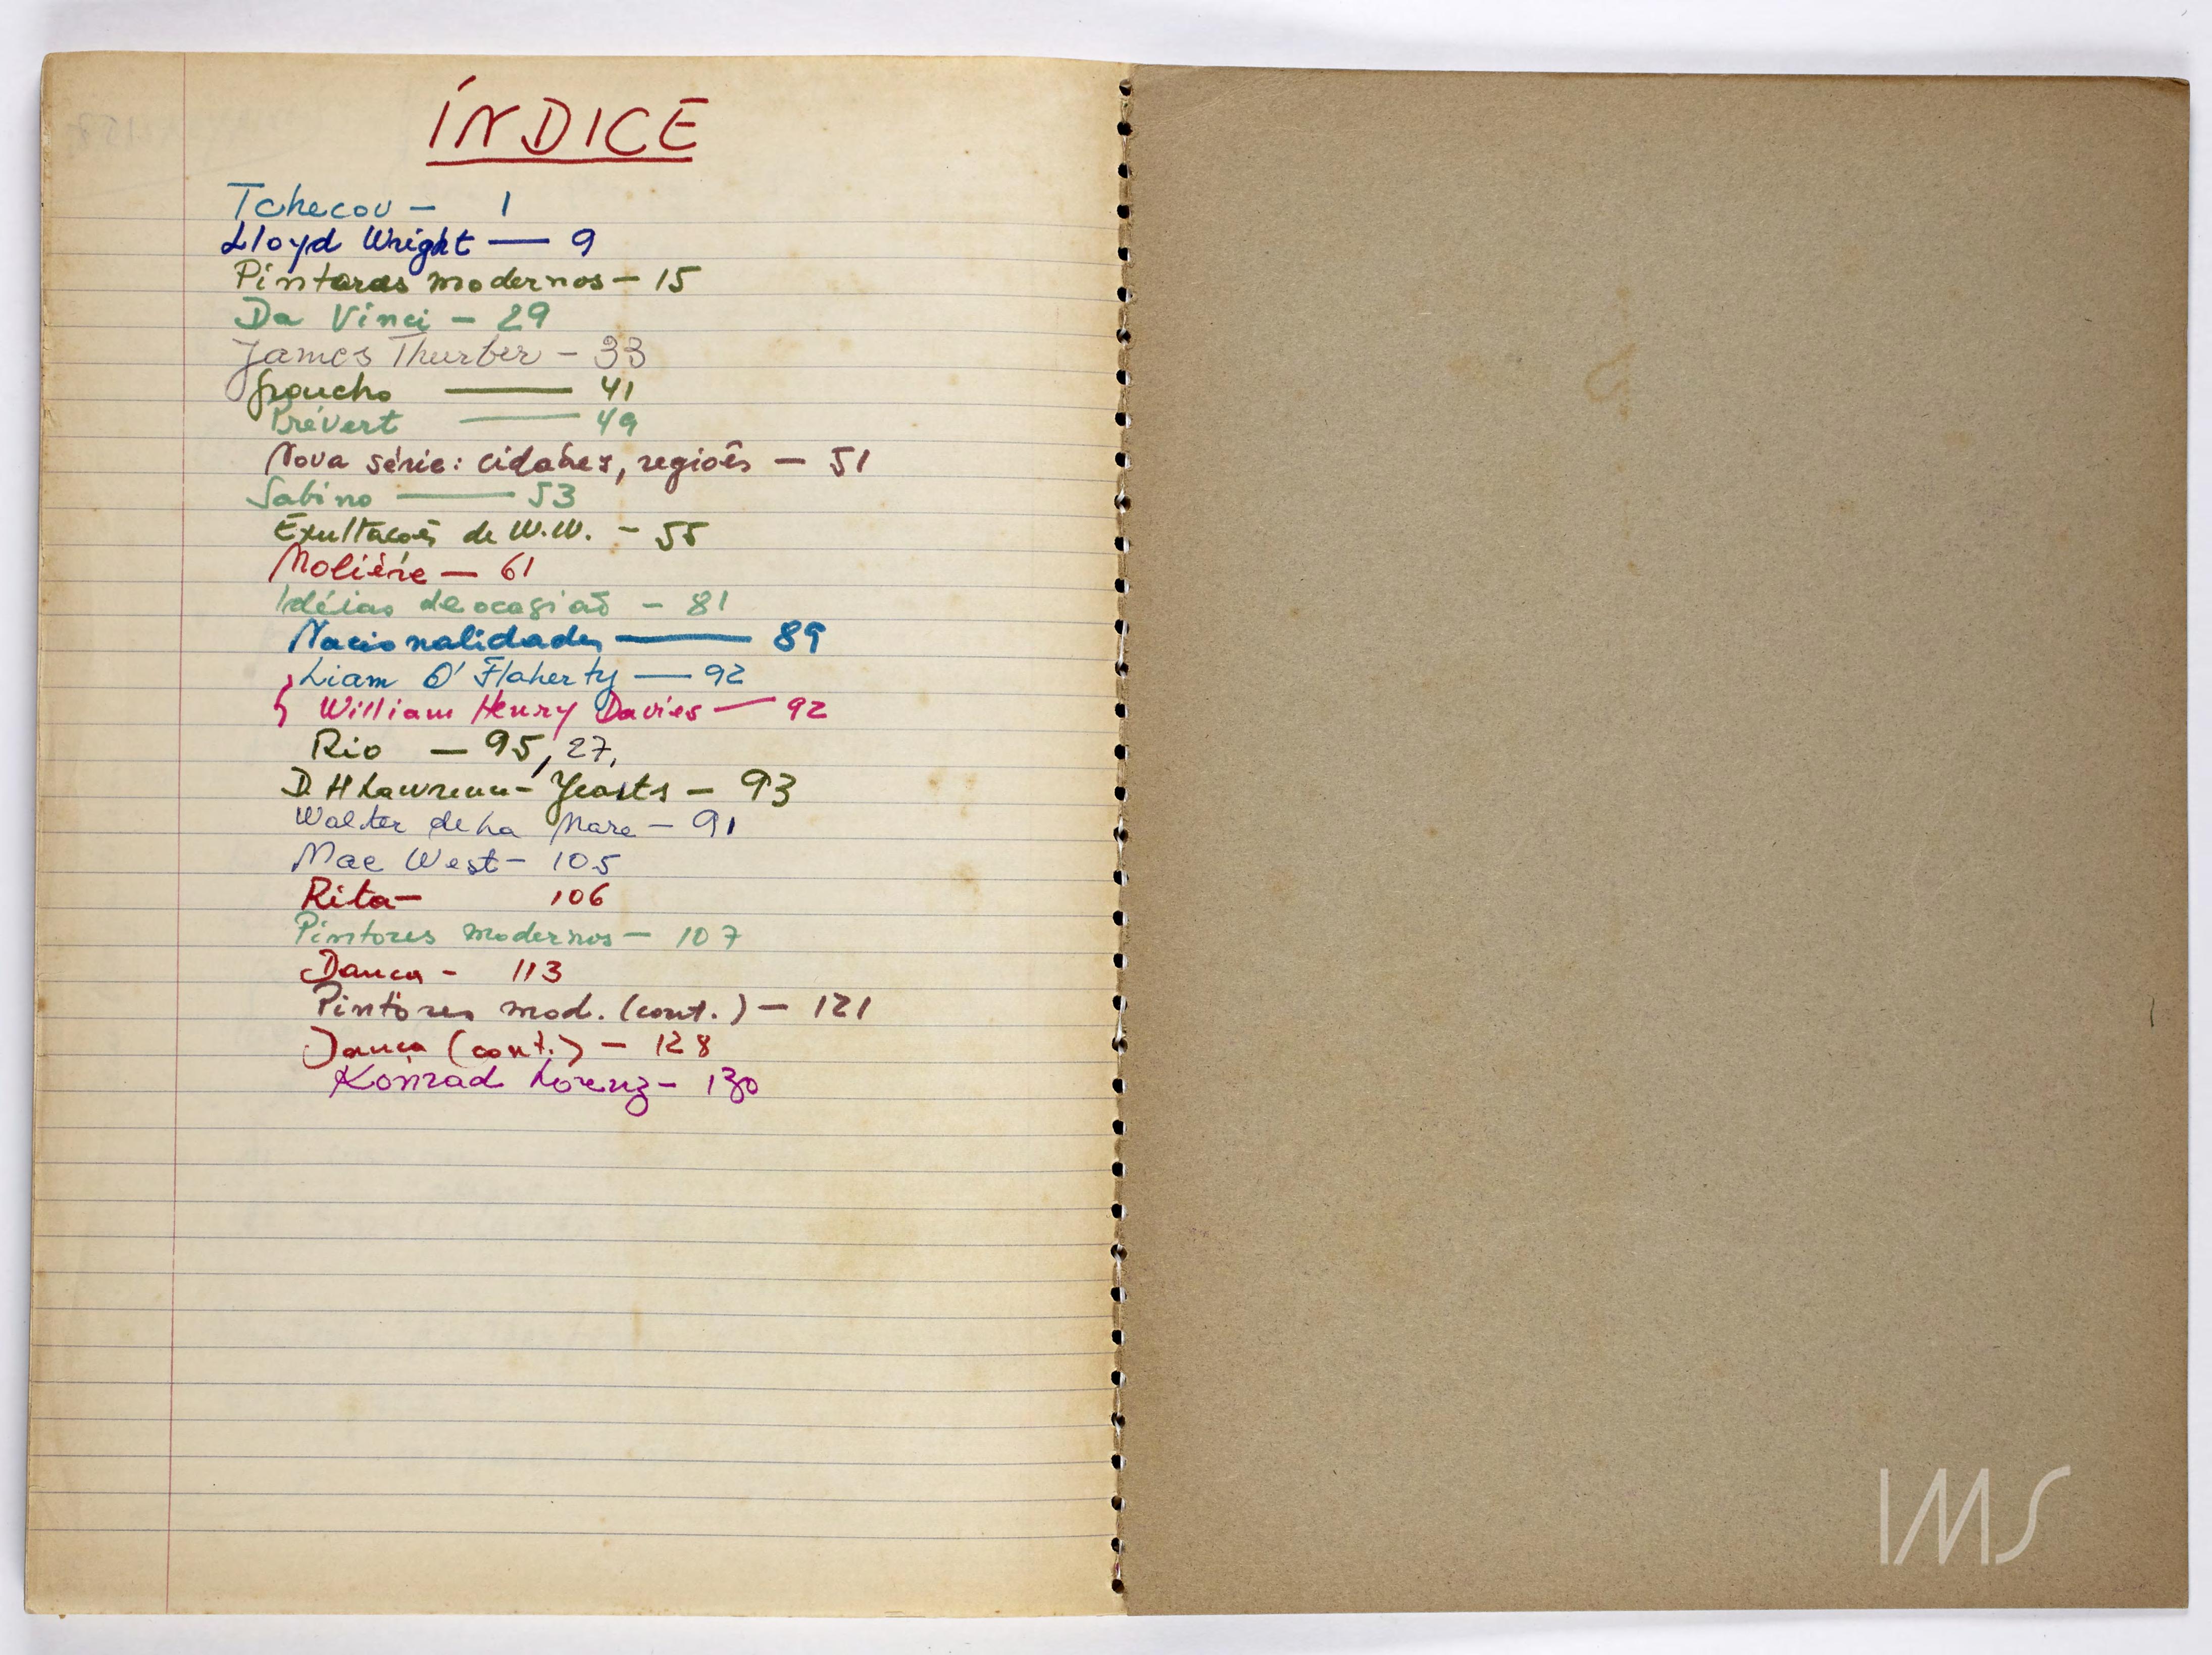 ÍNDICE
Tchecov — 1
Lloyd Wright — 9
Pintores modernos — 15
Da Vinci — 29
James Thurber — 33
Groucho — 41
Prévert — 49
Nova série: cidades, regiões — 51
Sabino — 53
Exultações de W.W. — 55
Molière — 61
Idéias de ocasião — 81
Nacionalidades — 89
Liam O'Flaherty — 92
William Henry Davies — 92
Rio — 95, 27,
D H Lawrence - Yeats — 93
Walter de La Mare — 91
Mae West — 105
Rita — 106
Pintores modernos — 107
Dança - 113
Pintores mod. (cont.) — 121
Dança (cont.) — 128
Konrad Lorenz — 130
IMS